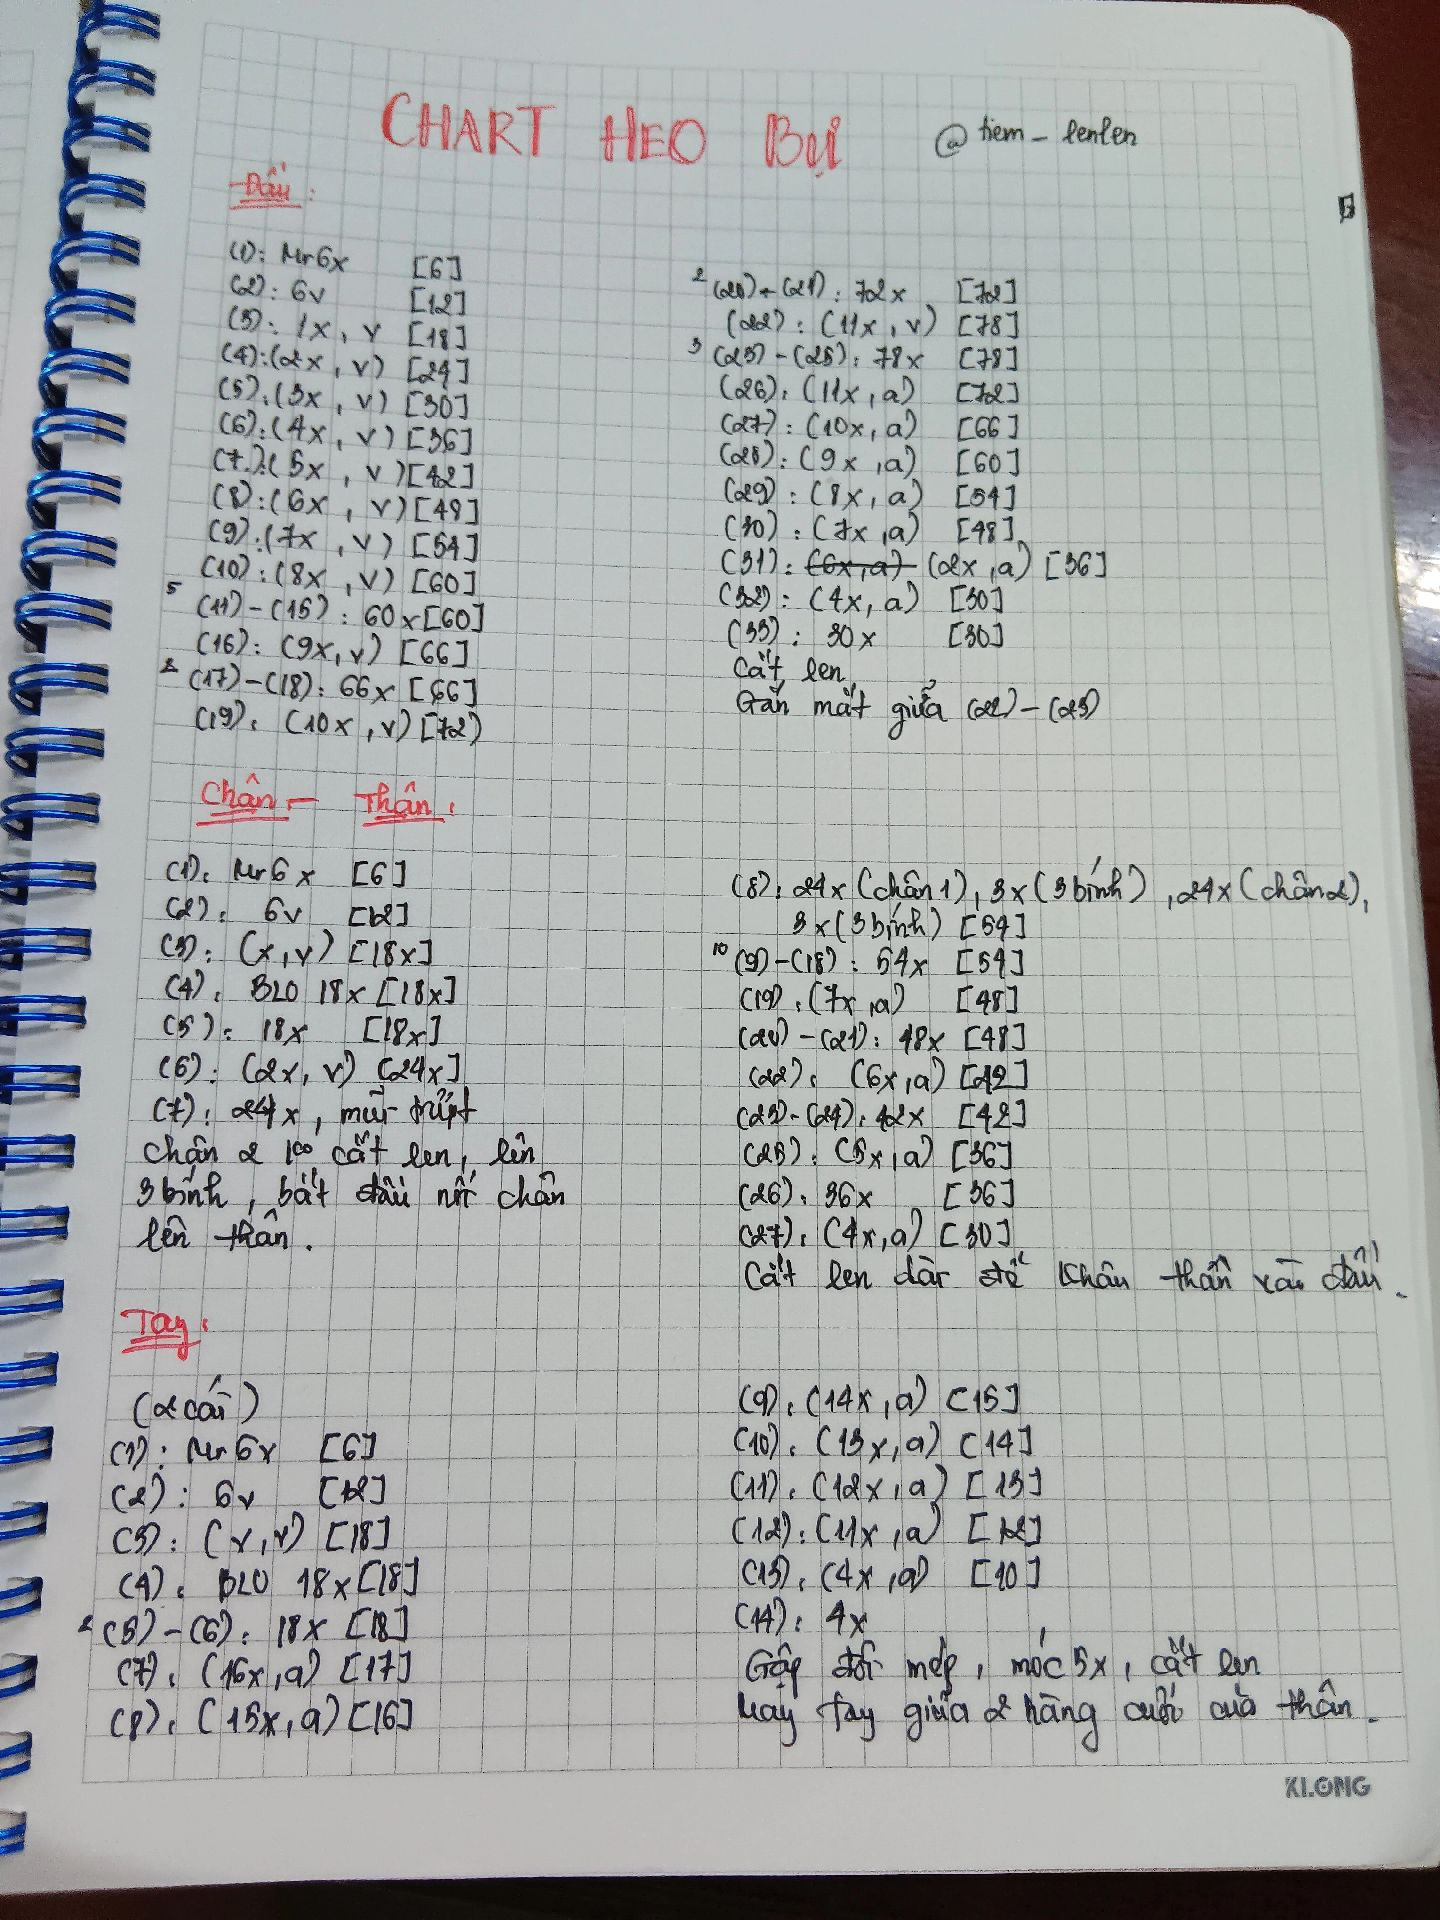 CHART HEO Bự @tiem_lenlen
Đầu:
(1): Mr6x [6]
(2): 6v [12]
(3): 1x, v [18]
(4): (2x, v) [24]
(5): (3x, v) [30]
(6): (4x, v) [36]
(7): (5x, v) [42]
(8): (6x, v) [48]
(9): (7x, v) [54]
(10): (8x, v) [60]
5 (11)-(15): 60x [60]
(16): (9x, v) [66]
2 (17)-(18): 66x [66]
(19): (10x, v) [72]
2 (20)-(21): 72x [72]
(22): (11x, v) [78]
3 (23)-(25): 78x [78]
(26): (11x, a) [72]
(27): (10x, a) [66]
(28): (9x, a) [60]
(29): (8x, a) [54]
(30): (7x, a) [48]
(31): (6x, a) (2x, a) [36]
(32): (4x, a) [30]
(33): 30x [30]
Cắt len
Gắn mắt giữa (22)-(23)
Chân - Thân:
(1): Mr6x [6]
(2): 6v [12]
(3): (x, v) [18x]
(4): BLO 18x [18x]
(5): 18x [18x]
(6): (2x, v) [24x]
(7): 24x, mũi trượt
chân 2 ko cắt len, lên
3 bính, bắt đầu nối chân
lên thân.
(8): 24x (chân 1), 3x (3 bính), 24x (chân 2),
3x (3 bính) [54]
10 (9)-(18): 54x [54]
(19): (7x, a) [48]
(20)-(21): 48x [48]
(22): (6x, a) [42]
(23)-(24): 42x [42]
(25): (5x, a) [36]
(26): 36x [36]
(27): (4x, a) [30]
Cắt len dài để khâu thân vào đầu.
Tay:
(2 cái)
(1): Mr6x [6]
(2): 6v [12]
(3): (x, v) [18]
(4): BLO 18x [18]
2 (5)-(6): 18x [18]
(7): (16x, a) [17]
(8): (15x, a) [16]
(9): (14x, a) [15]
(10): (13x, a) [14]
(11): (12x, a) [13]
(12): (11x, a) [12]
(13): (4x, a) [10]
(14): 4x
Gập đôi mép, móc 5x, cắt len
May tay giữa 2 hàng cuối của thân.
KLONG